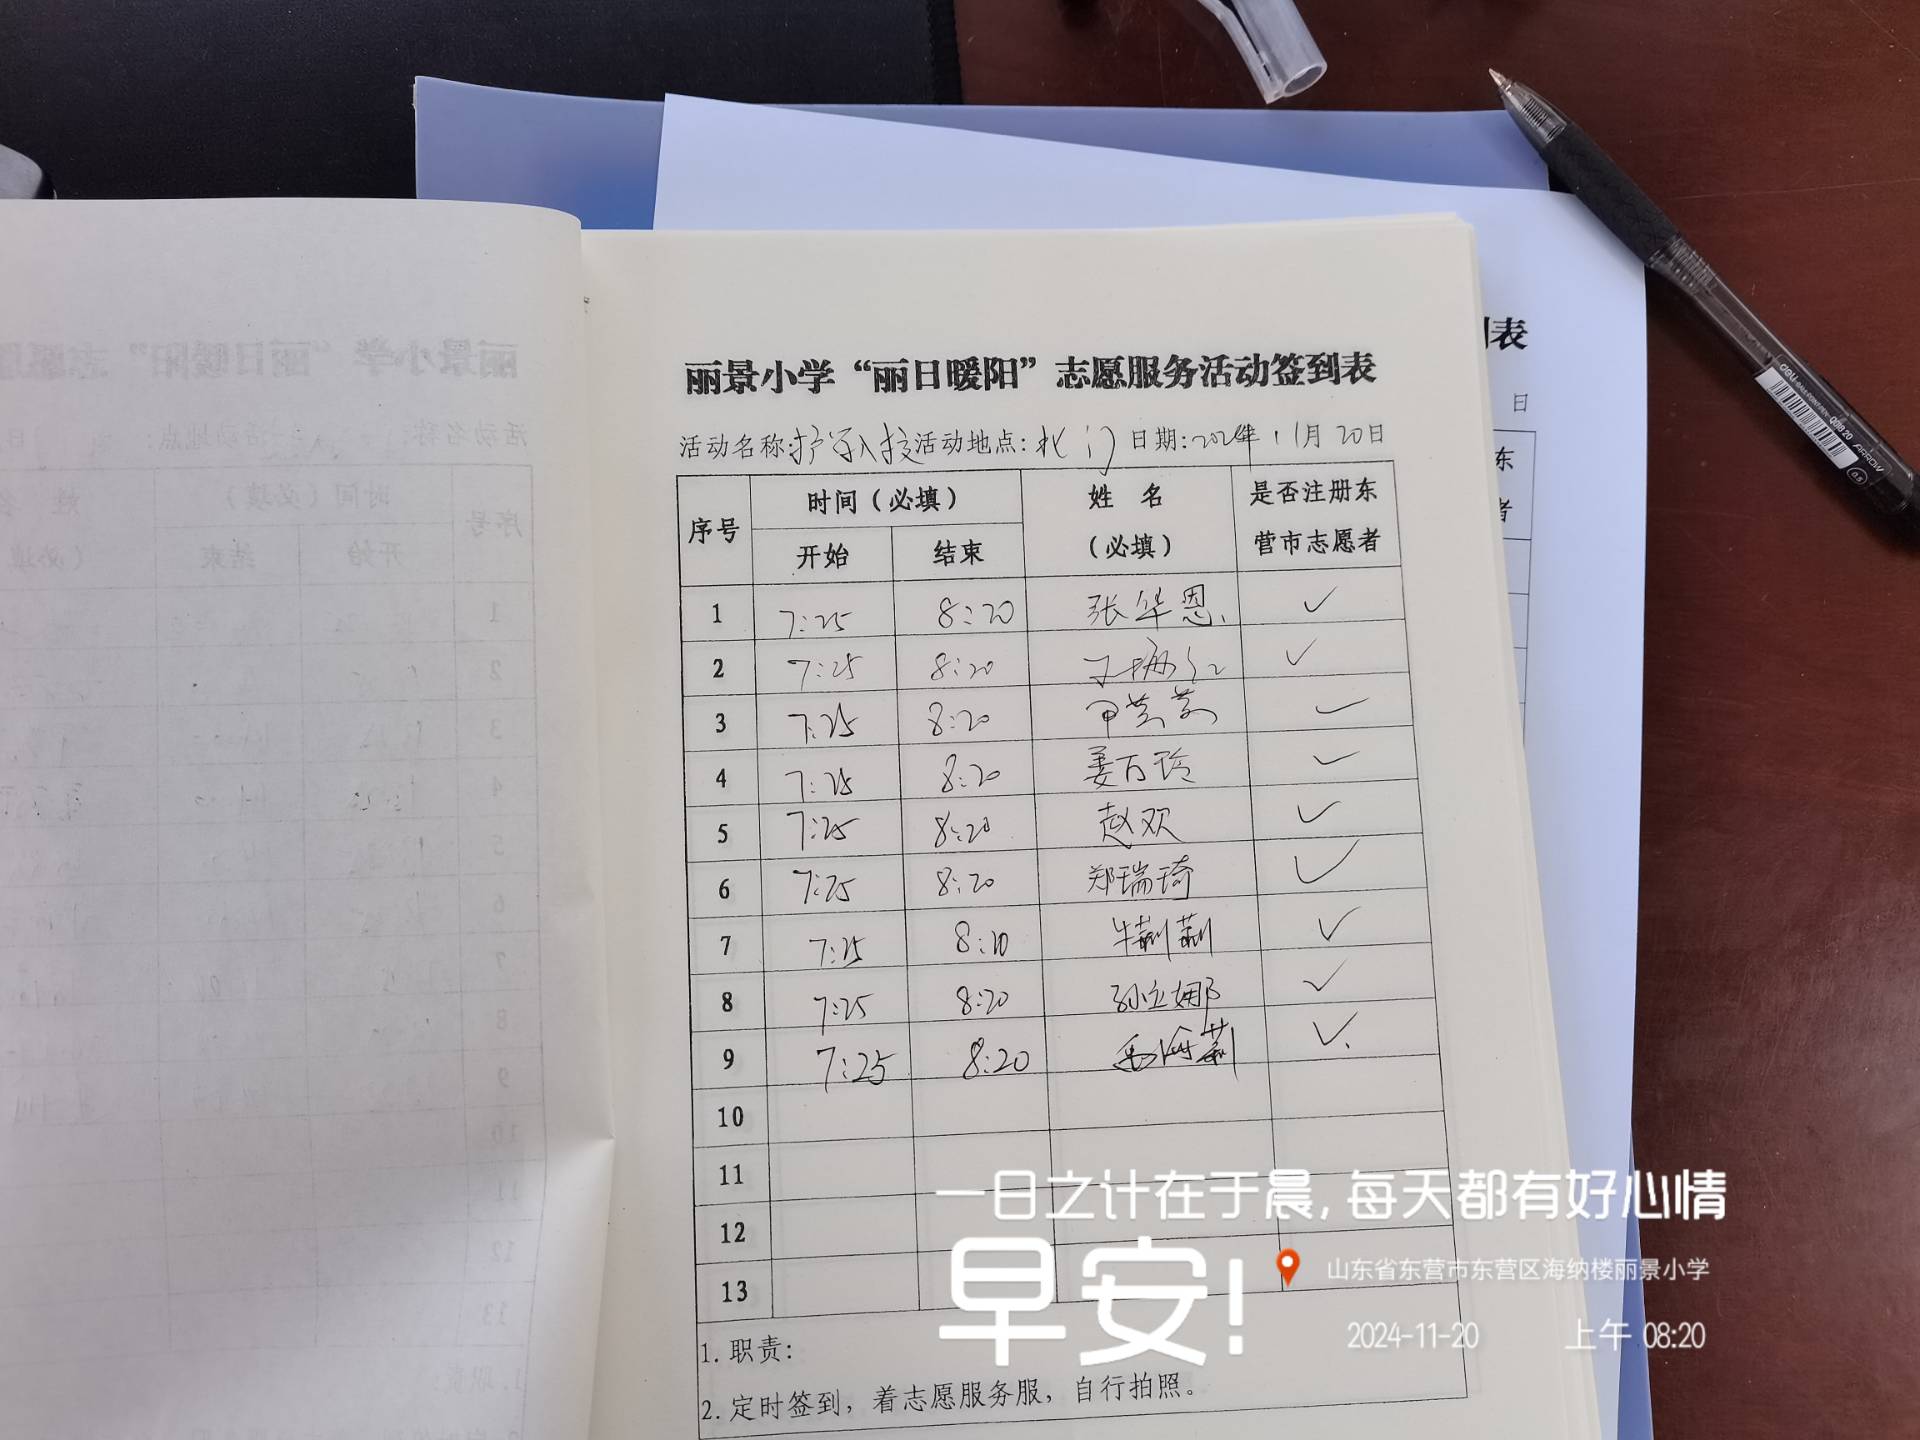 丽景小学“丽日暖阳”志愿服务活动签到表
活动名称:护学入校 活动地点:北门 日期:2024年11月20日
序号 时间(必填) 姓 名 (必填) 是否注册东营市志愿者
开始 结束
1 7:25 8:20 张华恩 ✓
2 7:25 8:20 ✓
3 7:25 8:20 ✓
4 7:25 8:20 姜百玲 ✓
5 7:25 8:20 赵欢 ✓
6 7:25 8:20 郑瑞琦 ✓
7 7:25 8:20 牛蒯蒯 ✓
8 7:25 8:20 孙立娜 ✓
9 7:25 8:20 毛海莉 ✓
10
11
12
13
1.职责:
2.定时签到,着志愿服务服,自行拍照。
到表
日
东
者
deli
Q0B20 ARROW
0.5
一日之计在于晨,每天都有好心情
早安!
山东省东营市东营区海纳楼丽景小学
2024-11-20 上午 08:20